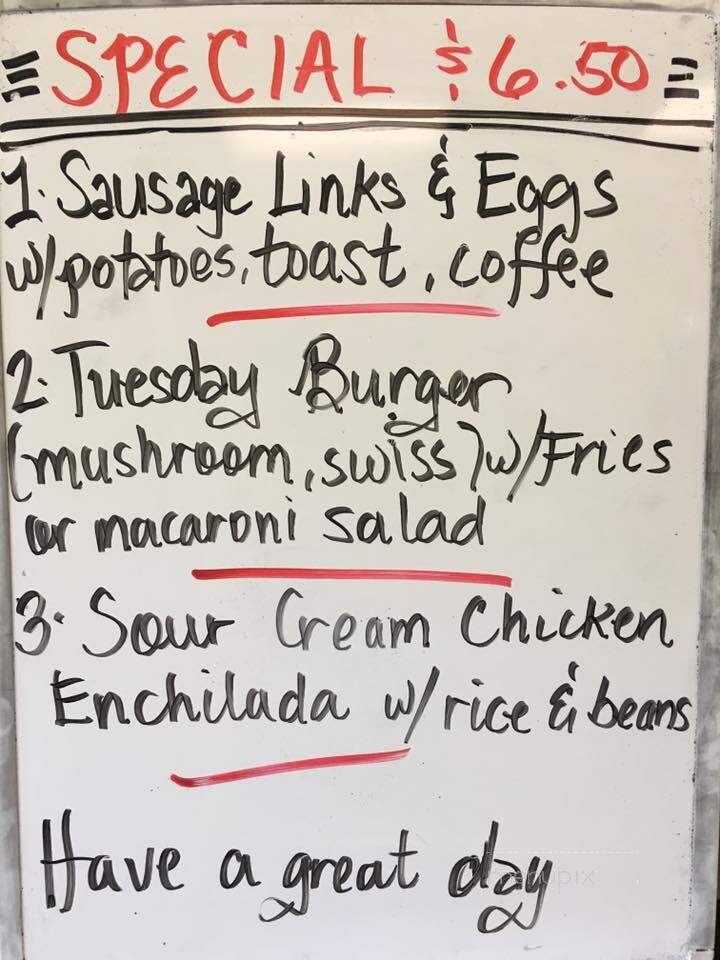 SPECIAL $6.50
1. Sausage Links & Eggs
w/potatoes, toast, coffee
2. Tuesday Burger
(mushroom, swiss) w/Fries
or macaroni salad
3. Sour Cream Chicken
Enchilada w/ rice & beans
Have a great day
menupix